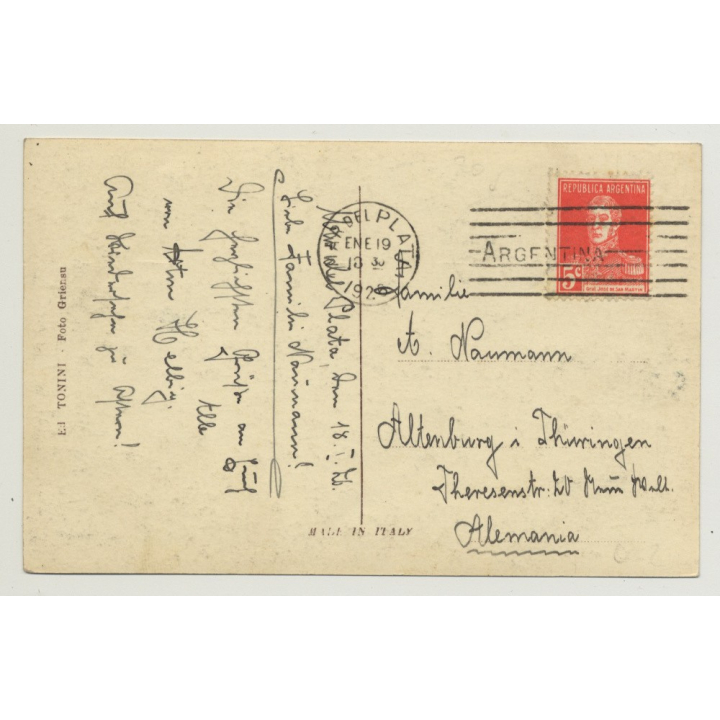 Mar del Plata, den 18.I.26.
Liebe Familie Naumann!
Die herzlichsten Grüße an Euch
Alle
von Helbig.
Auf Wiedersehen zu Ostern!
Ed TONINI - Foto Griensu
MADE IN ITALY
DEL PLATA
ENE 19
18 30
192
ARGENTINA
REPUBLICA ARGENTINA
5c
GRAL. JOSE DE SAN MARTIN
Familie
A. Naumann
Altenburg i Thüringen
Theresenstr. 20
Alemania